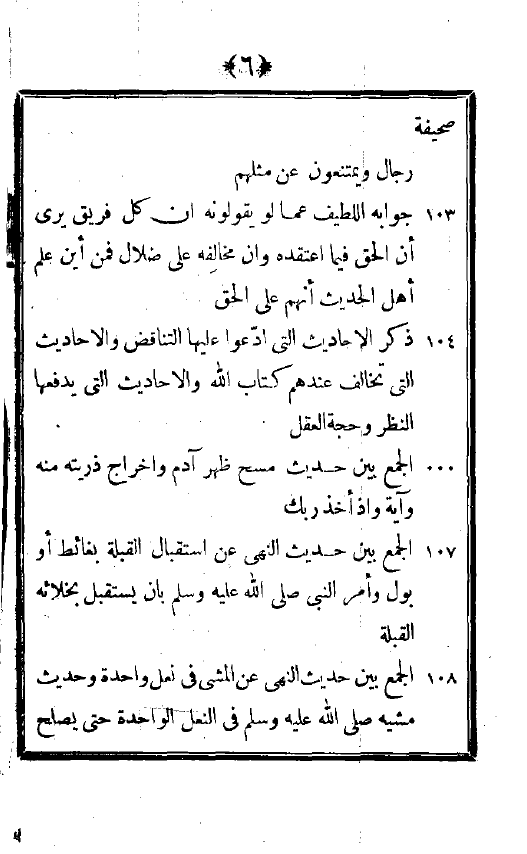 ﴿٦﴾
صحيفة
رجال ويمتنعون عن مثلهم
١٠٣ جوابه اللطيف عما لو يقولونه ان كل فريق يرى
أن الحق فيما اعتقده وان مخالفه على ضلال فمن أين علم
أهل الحديث أنهم على الحق
١٠٤ ذكر الاحاديث التى ادّعوا عليها التناقض والاحاديث
التى تخالف عندهم كتاب الله والاحاديث التى يدفعها
النظر وحجة العقل
٠٠٠ الجمع بين حديث مسح ظهر آدم واخراج ذريته منه
وآية واذ أخذ ربك
١٠٧ الجمع بين حديث النهى عن استقبال القبلة بغائط أو
بول وأمر النبى صلى الله عليه وسلم بان يستقبل بخلائه
القبلة
١٠٨ الجمع بين حديث النهى عن المشى فى نعل واحدة وحديث
مشيه صلى الله عليه وسلم فى النعل الواحدة حتى يصلح